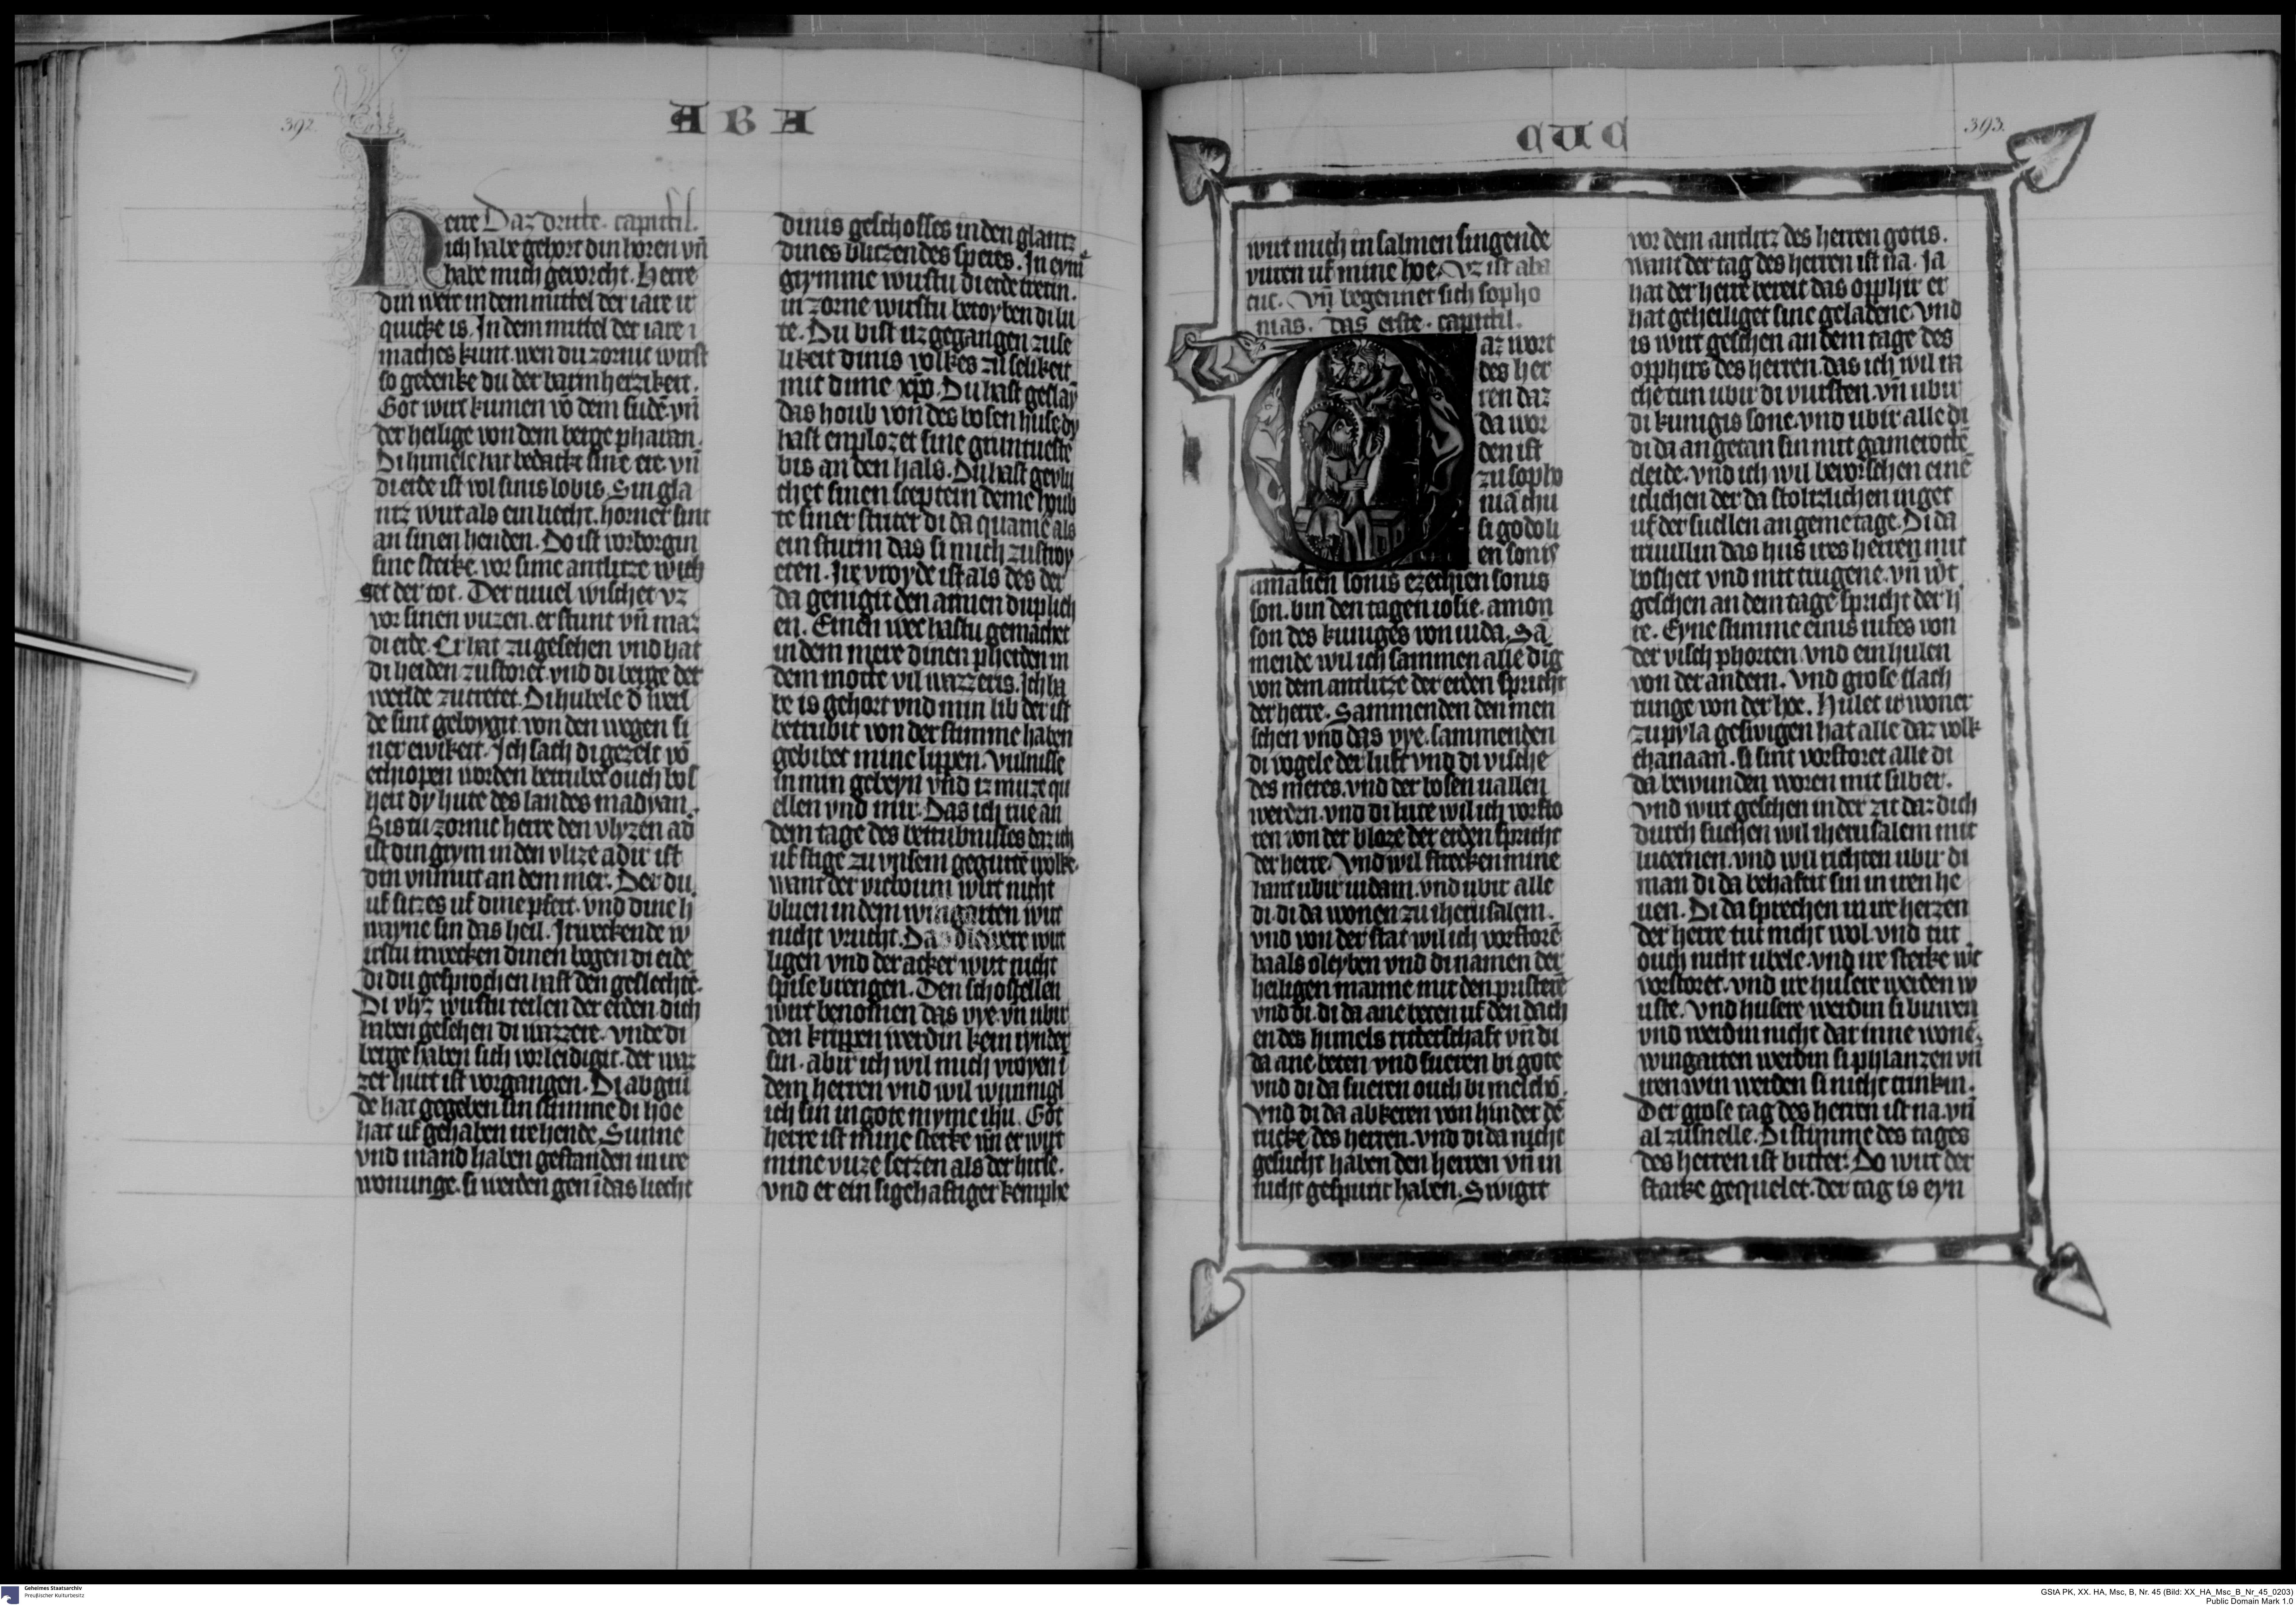 392.
ABA
Herre Daz dritte. capittil.
ich habe gehort din horen vn̄
habe mich gevorcht. Herre
din werc in dem mittel der iare ir
quicke is. In dem mittel der iare i
maches kunt. wen du zornic wirst
so gedenke du der barmherzikeit.
Got wirt kumen vō dem sudē. vn̄
der heilige von dem berge pharan.
Di himele hat bedackt sine ere. vn̄
di erde ist vol sinis lobis. Sin gla
ntz wirt als ein liecht. horner sint
an sinen henden. Do ist vorborgin
sine sterke. vor sime antlitze wich
get der tot. Der tiuuel wischet vz
vor sinen vuzen. er stunt vn̄ maz
di erde. Er hat zu gesehen vnd hat
di heiden zustoret. vnd di berge der
werlde zutretet. Di hubele d' werl
de sint geboygit. von den wegen si
ner ewikeit. Ich sach di gezelt vō
ethiopen worden betrubet ouch bos
heit dy hute des landes madyan.
Bistu zornic herre den vlyzen ad'
ist din grym in den vlize adir ist
din vnmut an dem mer. Der du
uf sitzes uf dine pfert. vnd dine h
wayne sin das heil. Irweckende w
irstu irwecken dinen bogen di eide
di du gesprochen hast den geslechtē.
Di vlyz wirstu teilen der erden dich
haben gesehen di wazzere. vnde di
berge haben sich vorleidigit. der waz
zer hurt ist vorgangen. Di abgrū
de hat gegeben sin stimme di hoe
hat uf gehaben ire hende. Sunne
vnd mand haben gestanden in ire
wonunge. si werden gen ī das liecht
dinis geschosses in den glantz
dines blitzendes speres. In eyme
grymme wirstu di erde tretin.
in zorne wirstu betoyben di lu
te. Du bist uz gegangen zu se
likeit dinis volkes zu selikeit
mit dime xp̄o. Du hast geslay
das houb von des bosen huse dy
hast enplozet sine gruntueste
bis an den hals. Du hast gevlu
chet sinen sceptein deme houb
te siner stritet di da quamē als
ein sturm das si mich zustroy
eten. Ire vroyde ist als des der
da genigit den armen duplich
en. Einen wec hastu gemachet
in dem mere dinen pherden in
dem motte vil wazzeris. Ich ha
be is gehort vnd min lib der ist
betrubit von der stimme haben
gebibet mine lippen. Vulnisse
in min gebeyn vnd iz muze qu
ellen vnd mir. Das ich rue an
dem tage des betrubnisses daz ich
uf stige zu vnsem gegurtē volke.
want der vicboum wirt nicht
bluen in dem wingarten wirt
nicht vrucht. Daz olewere wirt
ligen vnd der acker wirt nicht
spise brengen. Den schofstellen
wirt benomen das vye. vn̄ ubir
den krippen werdin kein rynder
sin. abir ich wil mich vroyen ī
dem herren vnd wil wunnigl
ich sin in gote myme ihu. Got
herre ist mine sterke vn̄ er wirt
mine vuze setzen als der hirse.
vnd er ein sigehaftiger kemphe
393.
CUC
wirt mich in salmen singende
vuren uf mine hoe. Vz ist aba
cuc. Vn̄ begennet sich sopho
nias. Das erste. capittil.
az wort
des her
ren daz
da wor
den ist
zu sopho
niā chu
si godoli
en sonis
amalien sonis ezechien sonis
son. bin den tagen iosie. amon
son des kuniges von iuda. Sā
mende wil ich sammen alle dīg
von dem antlitze der erden spricht
der herre. Sammenden den men
schen vnd das vye. sammenden
di vogele der luft vnd di vische
des meres. vnd der bosen uallen
werdin. vnd di lute wil ich vorsto
ren von der bloze der erden spricht
der herre. Vnd wil strecken mine
hant ubir iudam. vnd ubir alle
di. di da wonen zu iherusalem.
vnd von der stat wil ich vorstorē
baals oleyben vnd di namen der
heiligen manne mit den pristerē
vnd di. di da ane beten uf den dach
en des himels ritterschaft vn̄ di
da ane beten vnd sueren bi gote
vnd di da sueren ouch bi melchō.
Vnd di da abkeren von hinder dē
rucke des herren. vnd di da nicht
gesucht haben den herren vn̄ in
nicht gespurit haben. Swigit
vor dem antlitz des herren gotis.
want der tag des herren ist na. Ja
hat der herre bereit das opphir er
hat geheiliget sine geladene. vnd
is wirt geschen an dem tage des
opphirs des herren. das ich wil ra
che tun ubir di vursten. vn̄ ubir
di kunigis sone. vnd ubir alle di
di da an getan sin mit gamerottē
cleide. vnd ich wil bevorschen einē
itlichen der da stoltzlichen inget
uf der suellen an geme tage. Di da
iruullin das hus ires herren mit
bosheit vnd mit trugene. vn̄ wirt
geschen an dem tage spricht der h'
re. Eyne stimme einis rufes von
der visch phorten. vnd ein hulen
von der andern. Vnd grose clach
tunge von der hoe. Hulet ir woner
zu pyla geswigen hat alle daz volk
chanaan. si sint vorstoret alle di
da bewunden woren mit silber.
Vnd wirt geschen in der zit daz dich
durch suchen wil iherusalem mit
lucernen. vnd wil richten ubir di
man di da behafeit sin in iren he
uen. Di da sprechen in ire herzen
der herre tut nicht wol. vnd tut
ouch nicht ubele. vnd ire sterke wirt
vorstoret. vnd ire husere werden w
uste. Vnd husere werdin si buwen
vnd werdin nicht dar inne wonē.
wingarten werdin si phlanzen vn̄
iren win werden si nicht trinkin.
Der grose tag des herren ist na. vn̄
al zusnelle. Di stimme des tages
des herren ist bitter. Do wirt der
starke gequelet. der tag is eyn
Geheimes Staatsarchiv
Preußischer Kulturbesitz
GStA PK, XX. HA, Msc, B, Nr. 45 (Bild: XX_HA_Msc_B_Nr_45_0203)
Public Domain Mark 1.0